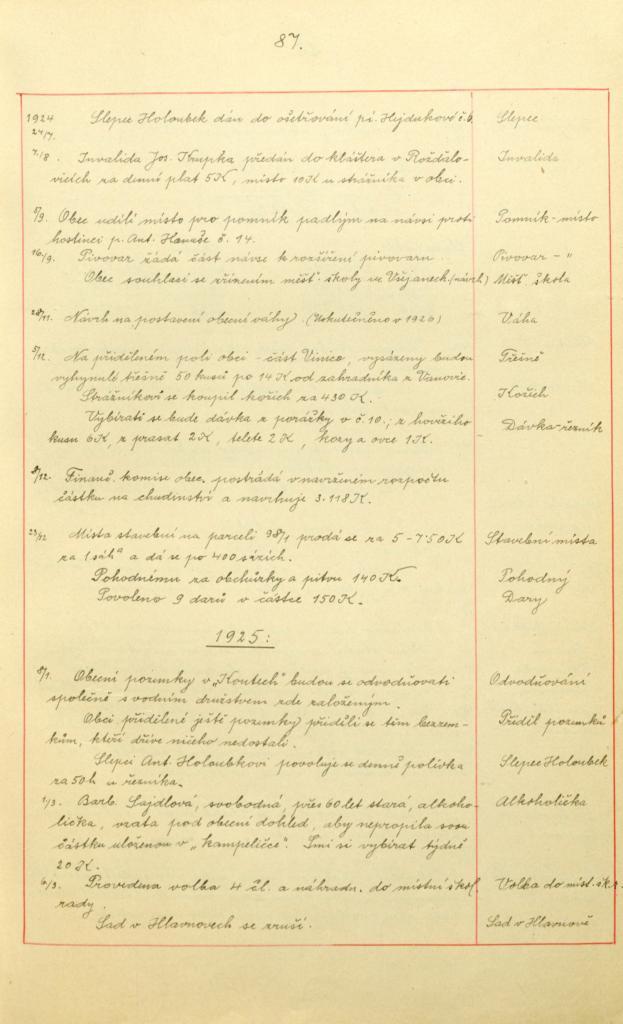 87.
1924 Slepec Holoubek dán do ošetřování pí. Hejdukové č. 6 Slepec
24/7.
7/8. Invalida Jos. Krupka předán do kláštera v Rožďalo- Invalida
vicích za denní plat 5K, místo 10K u strážníka v obci.
5/9. Obec udílí místo pro pomník padlým na návsi proti Pomník-místo
hostinci p. Ant. Hanuše č. 14.
16/9. Pivovar žádá část návse k rozšíření pivovaru. Pivovar - "
Obec souhlasí se zřízením měšť. školy ve Všejanech. (návrh) Měšť. škola
28/11. Návrh na postavení obecní váhy. (Uskutečněno v 1926) Váha
5/12. Na přiděleném poli obci - část Vinice, vysázeny budou Třešně
vyhynulé třešně 50 kusů po 14 K od zahradníka z Vanovic.
Strážníkovi se koupil kožich za 430 K. Kožich
Vybírati se bude dávka z porážky v č. 10.; z hovězího Dávka-řezník
kusu 6K, z prasat 2K, telete 2K, kozy a ovce 1K.
8/12. Finanč. komise obec. postrádá v navrženém rozpočtu
částku na chudinství a navrhuje 3.118 K.
23/12 Místa stavební na parceli 98/1 prodá se za 5-7·50 K Stavební místa
za 1 sáh a dá se po 400 sázích.
Pohodnému za obchůzky a pitvu 140 K. Pohodný
Povoleno 9 darů v částce 150 K. Dary
1925:
8/1. Obecní pozemky v „Koutech" budou se odvodňovati Odvodňování
společně s vodním družstvem zde založeným.
Obci přidělené ještě pozemky přidělí se těm bezzem- Příděl pozemků
kům, kteří dříve ničeho nedostali.
Slepci Ant. Holoubkovi povoluje se denně polívka Slepec Holoubek
za 50 h u řezníka.
1/3. Barb. Lajdlová, svobodná, přes 60 let stará, alkoho- Alkoholička
lička, vzata pod obecní dohled, aby nepropila svou
částku uloženou v „Kampeličce". Smí si vybírat týdně
20 K.
6/3. Provedena volba 4 čl. a náhradn. do místní škol. Volba do míst. šk. r.
rady.
Sad v Hlavnovech se zruší. Sad v Hlavnově